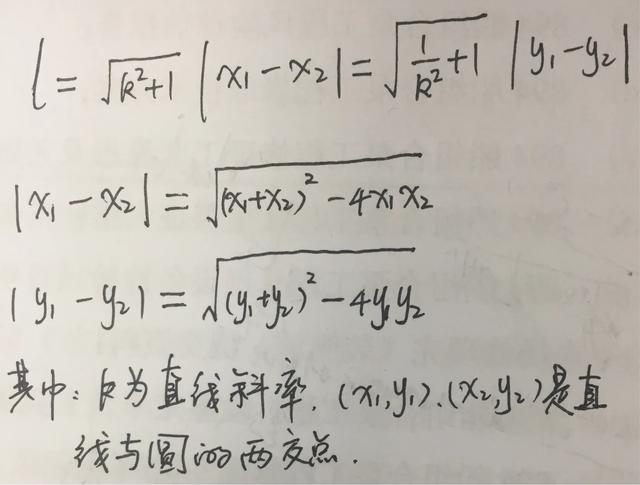 l = √(k²+1) |x₁ - x₂| = √(1/k² +1) |y₁ - y₂|
|x₁ - x₂| = √((x₁+x₂)² - 4x₁x₂)
|y₁ - y₂| = √((y₁+y₂)² - 4y₁y₂)
其中: k为直线斜率. (x₁,y₁).(x₂,y₂)是直
线与圆的两交点.